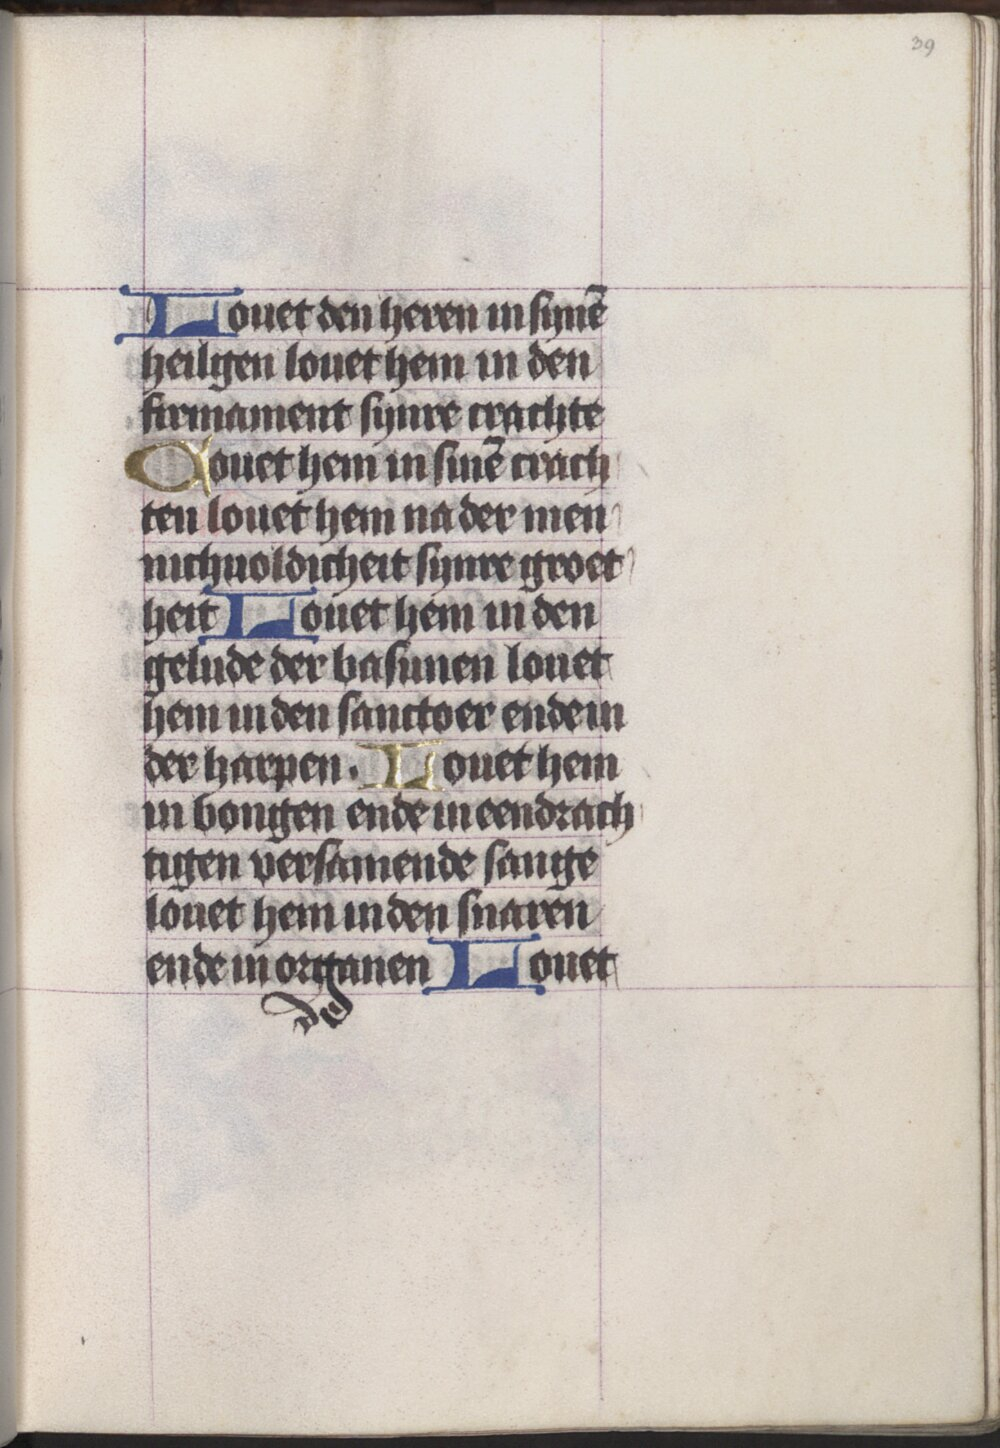 39
Louet den heren in sijnē
heiligen louet hem in den
firmament sijnre crachte
Qouet hem in sinē crach
ten louet hem na der men
nichuoldicheit sijnre groet
heit Louet hem in den
gelude der basunen louet
hem in den sanctoer ende in
der harpen. Louet hem
in bongen ende in eendrach
tigen versamende sange
louet hem in den snaren
ende in organen Louet